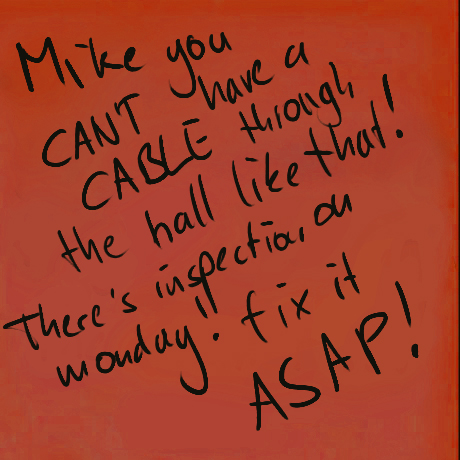 Mike you
CAN'T have a
CABLE through
the hall like that!
There's inspection on
monday!! fix it
ASAP!